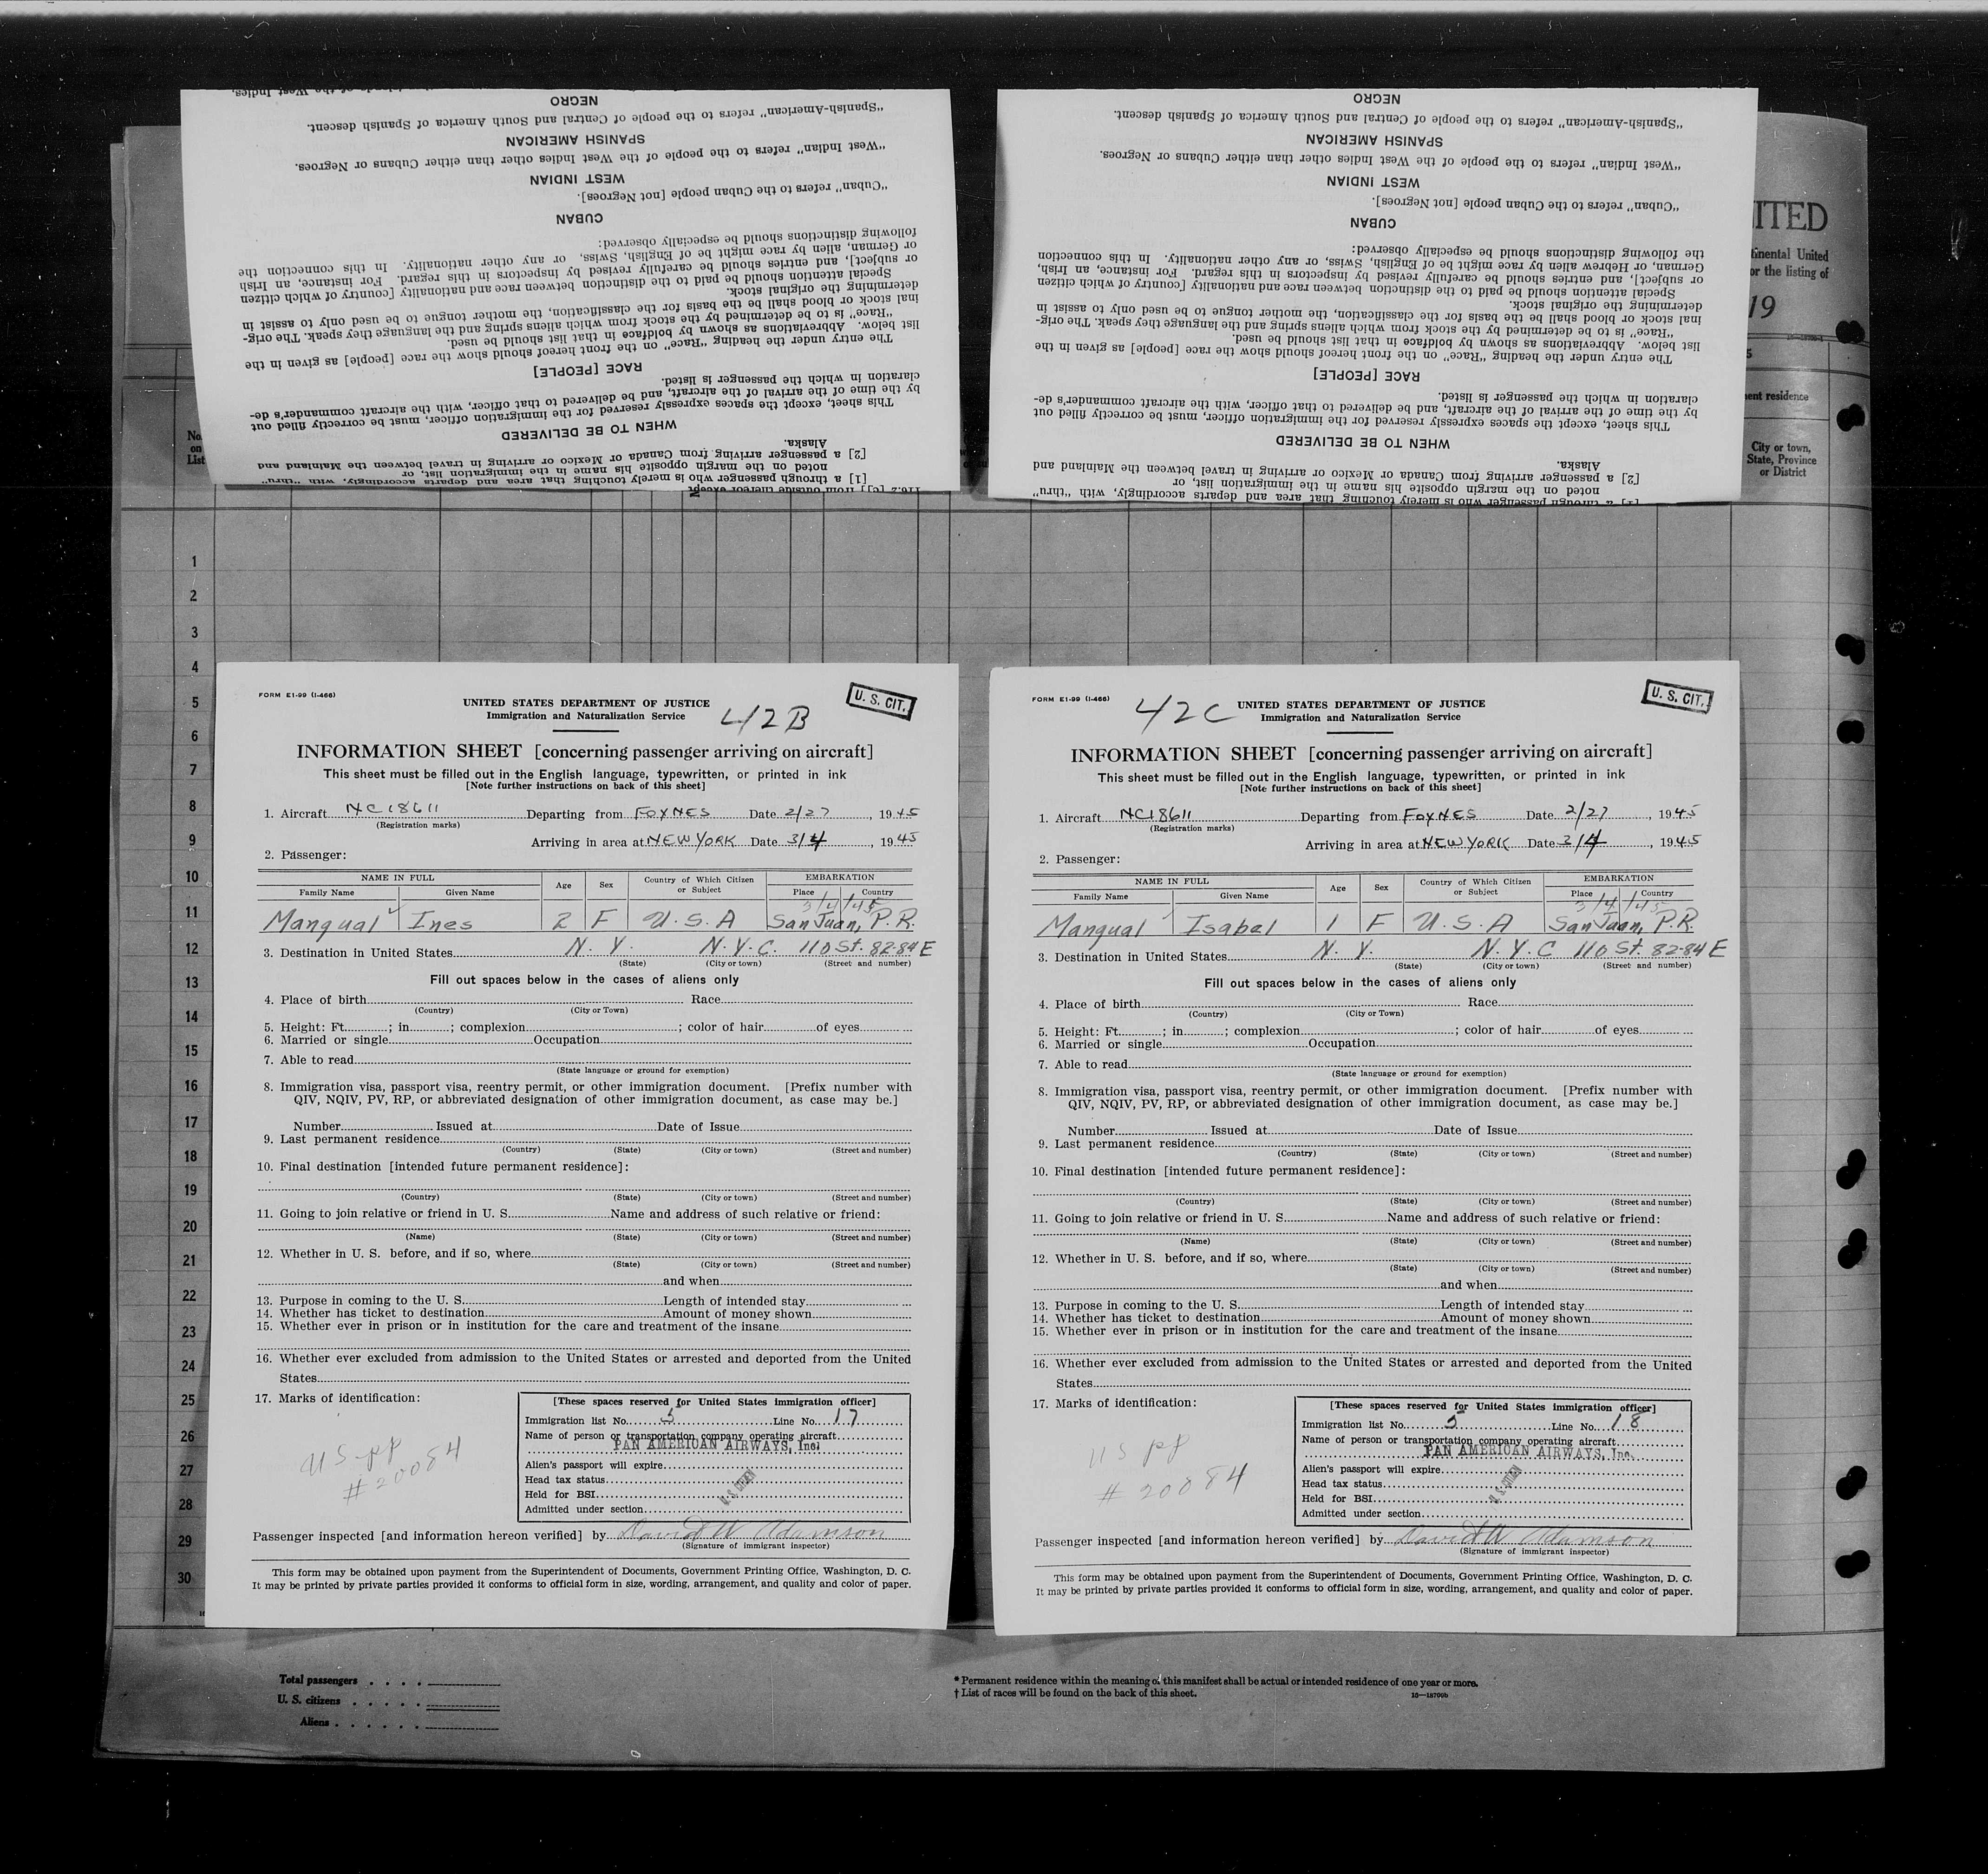 NEGRO
"Spanish-American" refers to the people of Central and South America of Spanish descent.
SPANISH AMERICAN
"West Indian" refers to the people of the West Indies other than either Cubans or Negroes.
WEST INDIAN
"Cuban" refers to the Cuban people [not Negroes].
CUBAN
following distinctions should be especially observed:
or German, alien by race might be of English, Swiss, or any other nationality. In this connection the
or subject], and entries should be carefully revised by inspectors in this regard. For instance, an Irish
Special attention should be paid to the distinction between race and nationality [country of which citizen
determining the original stock.
inal stock or blood shall be the basis for the classification, the mother tongue to be used only to assist in
"Race" is to be determined by the stock from which aliens spring and the language they speak. The orig-
list below. Abbreviations as shown by boldface in that list should be used.
The entry under the heading "Race" on the front hereof should show the race [people] as given in the
RACE [PEOPLE]
claration in which the passenger is listed.
by the time of the arrival of the aircraft, and be delivered to that officer, with the aircraft commander's de-
This sheet, except the spaces expressly reserved for the immigration officer, must be correctly filled out
WHEN TO BE DELIVERED
Alaska.
[2] a passenger arriving from Canada or Mexico or arriving in travel between the Mainland and
noted on the margin opposite his name in the immigration list, or
[1] a through passenger who is merely touching that area and departs accordingly, with "thru"
116.2 [c]] from outside thereof except
NEGRO
"Spanish-American" refers to the people of Central and South America of Spanish descent.
SPANISH AMERICAN
"West Indian" refers to the people of the West Indies other than either Cubans or Negroes.
WEST INDIAN
"Cuban" refers to the Cuban people [not Negroes].
CUBAN
the following distinctions should be especially observed:
German, or Hebrew alien by race might be of English, Swiss, or any other nationality. In this connection
or subject], and entries should be carefully revised by inspectors in this regard. For instance, an Irish,
Special attention should be paid to the distinction between race and nationality [country of which citizen
determining the original stock.
inal stock or blood shall be the basis for the classification, the mother tongue to be used only to assist in
"Race" is to be determined by the stock from which aliens spring and the language they speak. The orig-
list below. Abbreviations as shown by boldface in that list should be used.
The entry under the heading "Race" on the front hereof should show the race [people] as given in the
RACE [PEOPLE]
claration in which the passenger is listed.
by the time of the arrival of the aircraft, and be delivered to that officer, with the aircraft commander's de-
This sheet, except the spaces expressly reserved for the immigration officer, must be correctly filled out
WHEN TO BE DELIVERED
Alaska.
[2] a passenger arriving from Canada or Mexico or arriving in travel between the Mainland and
noted on the margin opposite his name in the immigration list, or
[1] a through passenger who is merely touching that area and departs accordingly, with "thru"
ITED
tinental United
or the listing of
19
5
ent residence
City or town,
State, Province
or District
No.
on
List
1
2
3
4
5
6
7
8
9
10
11
12
13
14
15
16
17
18
19
20
21
22
23
24
25
26
27
28
29
30
FORM E1-99 (I-466)
UNITED STATES DEPARTMENT OF JUSTICE
Immigration and Naturalization Service
42B
U. S. CIT.
INFORMATION SHEET [concerning passenger arriving on aircraft]
This sheet must be filled out in the English language, typewritten, or printed in ink
[Note further instructions on back of this sheet]
1. Aircraft NC18611 Departing from FOYNES Date 2/27, 1945
(Registration marks)
Arriving in area at NEW YORK Date 3/4, 1945
2. Passenger:
NAME IN FULL Age Sex Country of Which Citizen or Subject EMBARKATION
Family Name Given Name Place Country
3/4/45
Mangual Ines 2 F U.S.A San Juan, P.R.
3. Destination in United States N.Y. N.Y.C. 110 St. 82-84 E
(State) (City or town) (Street and number)
Fill out spaces below in the cases of aliens only
4. Place of birth Race
(Country) (City or Town)
5. Height: Ft. ; in ; complexion ; color of hair of eyes
6. Married or single Occupation
7. Able to read
(State language or ground for exemption)
8. Immigration visa, passport visa, reentry permit, or other immigration document. [Prefix number with
QIV, NQIV, PV, RP, or abbreviated designation of other immigration document, as case may be.]
Number Issued at Date of Issue
9. Last permanent residence
(Country) (State) (City or town) (Street and number)
10. Final destination [intended future permanent residence]:
(Country) (State) (City or town) (Street and number)
11. Going to join relative or friend in U. S. Name and address of such relative or friend:
(Name) (State) (City or town) (Street and number)
12. Whether in U. S. before, and if so, where
(State) (City or town) (Street and number)
and when
13. Purpose in coming to the U. S. Length of intended stay
14. Whether has ticket to destination Amount of money shown
15. Whether ever in prison or in institution for the care and treatment of the insane
16. Whether ever excluded from admission to the United States or arrested and deported from the United
States
17. Marks of identification:
US pp
#20084
[These spaces reserved for United States immigration officer]
Immigration list No. 5 Line No. 17
Name of person or transportation company operating aircraft
PAN AMERICAN AIRWAYS, Inc.
Alien's passport will expire
Head tax status
Held for BSI
U.S. CITIZEN
Admitted under section
Passenger inspected [and information hereon verified] by David W Adamson
(Signature of immigrant inspector)
This form may be obtained upon payment from the Superintendent of Documents, Government Printing Office, Washington, D. C.
It may be printed by private parties provided it conforms to official form in size, wording, arrangement, and quality and color of paper.
FORM E1-99 (I-466)
42C
UNITED STATES DEPARTMENT OF JUSTICE
Immigration and Naturalization Service
U. S. CIT.
INFORMATION SHEET [concerning passenger arriving on aircraft]
This sheet must be filled out in the English language, typewritten, or printed in ink
[Note further instructions on back of this sheet]
1. Aircraft NC18611 Departing from FOYNES Date 2/27, 1945
(Registration marks)
Arriving in area at NEW YORK Date 3/4, 1945
2. Passenger:
NAME IN FULL Age Sex Country of Which Citizen or Subject EMBARKATION
Family Name Given Name Place Country
3/4/45
Mangual Isabel 1 F U.S.A San Juan, P.R.
3. Destination in United States N.Y. N.Y.C 110 St. 82-84 E
(State) (City or town) (Street and number)
Fill out spaces below in the cases of aliens only
4. Place of birth Race
(Country) (City or Town)
5. Height: Ft. ; in ; complexion ; color of hair of eyes
6. Married or single Occupation
7. Able to read
(State language or ground for exemption)
8. Immigration visa, passport visa, reentry permit, or other immigration document. [Prefix number with
QIV, NQIV, PV, RP, or abbreviated designation of other immigration document, as case may be.]
Number Issued at Date of Issue
9. Last permanent residence
(Country) (State) (City or town) (Street and number)
10. Final destination [intended future permanent residence]:
(Country) (State) (City or town) (Street and number)
11. Going to join relative or friend in U. S. Name and address of such relative or friend:
(Name) (State) (City or town) (Street and number)
12. Whether in U. S. before, and if so, where
(State) (City or town) (Street and number)
and when
13. Purpose in coming to the U. S. Length of intended stay
14. Whether has ticket to destination Amount of money shown
15. Whether ever in prison or in institution for the care and treatment of the insane
16. Whether ever excluded from admission to the United States or arrested and deported from the United
States
17. Marks of identification:
US pp
#20084
[These spaces reserved for United States immigration officer]
Immigration list No. 5 Line No. 18
Name of person or transportation company operating aircraft
PAN AMERICAN AIRWAYS, Inc.
Alien's passport will expire
Head tax status
Held for BSI
U.S. CITIZEN
Admitted under section
Passenger inspected [and information hereon verified] by David W Adamson
(Signature of immigrant inspector)
This form may be obtained upon payment from the Superintendent of Documents, Government Printing Office, Washington, D. C.
It may be printed by private parties provided it conforms to official form in size, wording, arrangement, and quality and color of paper.
Total passengers
U. S. citizens
Aliens
* Permanent residence within the meaning of this manifest shall be actual or intended residence of one year or more.
† List of races will be found on the back of this sheet.
16—18706b